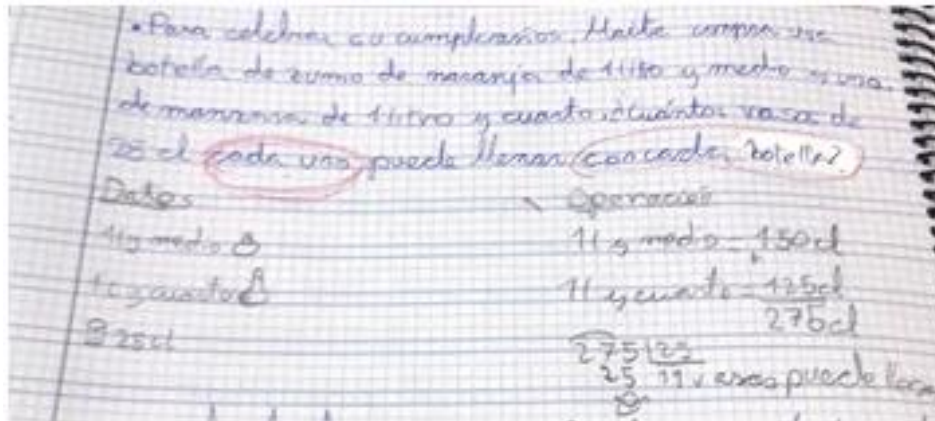 • Para celebrar su cumpleaños, Maite compra una
botella de zumo de naranja de 1 litro y medio y una
de manzana de 1 litro y cuarto. ¿Cuántos vasos de
25 cl cada uno puede llenar con cada botella?
Datos Operación
1l y medio 1l y medio = 150cl
1l y cuarto 1l y cuarto = 125cl
275cl
25cl
275 25
25 11 vasos puede
0